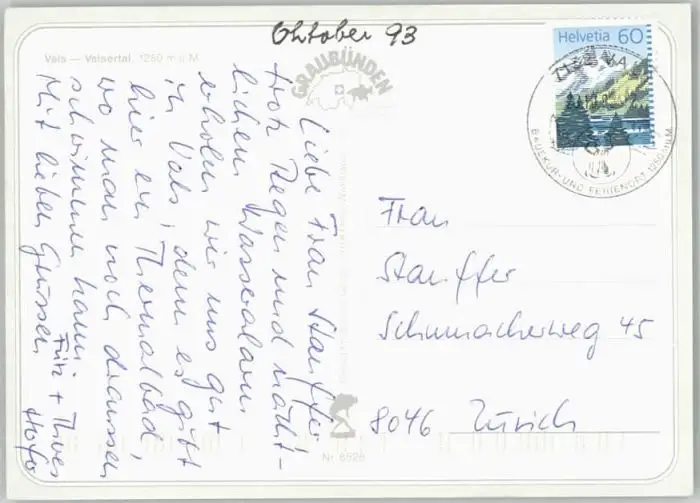 Oktober 93
Vals — Valsertal, 1250 m ü. M.
GRAUBÜNDEN
Helvetia 60
7132 VALS
BADEKUR- UND FERIENORT 1250 M.Ü.M.
Liebe Frau Stauffer!
trotz Regen und nächt-
lichem Wasseralarm
erholen wir uns gut
in Vals, denn es gibt
hier ein Thermalbad,
wo man noch draussen
schwimmen kann.
Mit lieben Grüssen
Fritz +
Hofer
Frau
Stauffer
Schumacherweg 45
8046 Zürich
Nr. 6526